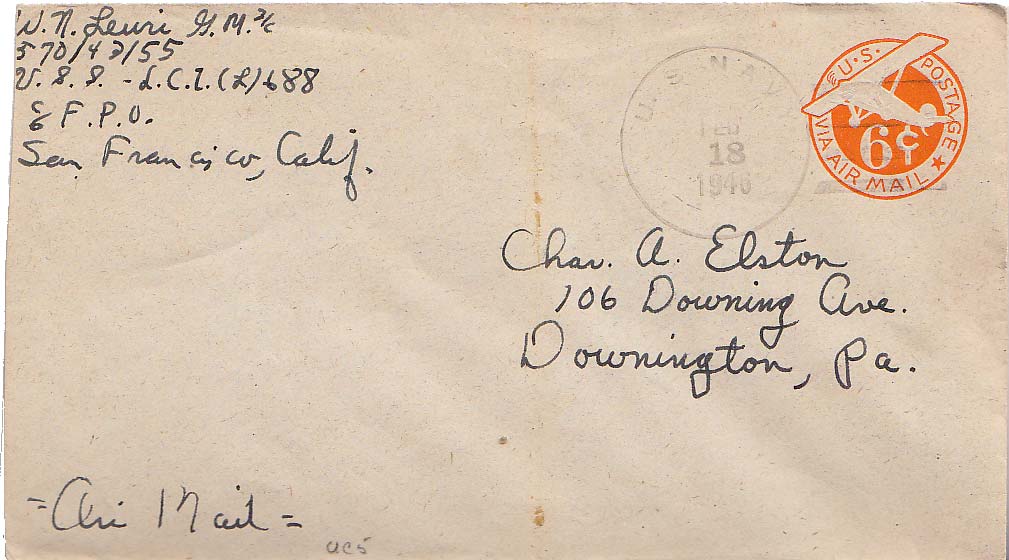 W. N. Lewis G. M. 3/c
570/43/55
U. S. S. - L.C.I. (L) 688
c/o F. P. O.
San Francisco, Calif.
U. S. NAVY
FEB
18
1946
U.S. POSTAGE
6¢
VIA AIR MAIL
Chas. A. Elston
106 Downing Ave.
Downington, Pa.
= Air Mail =
UC5